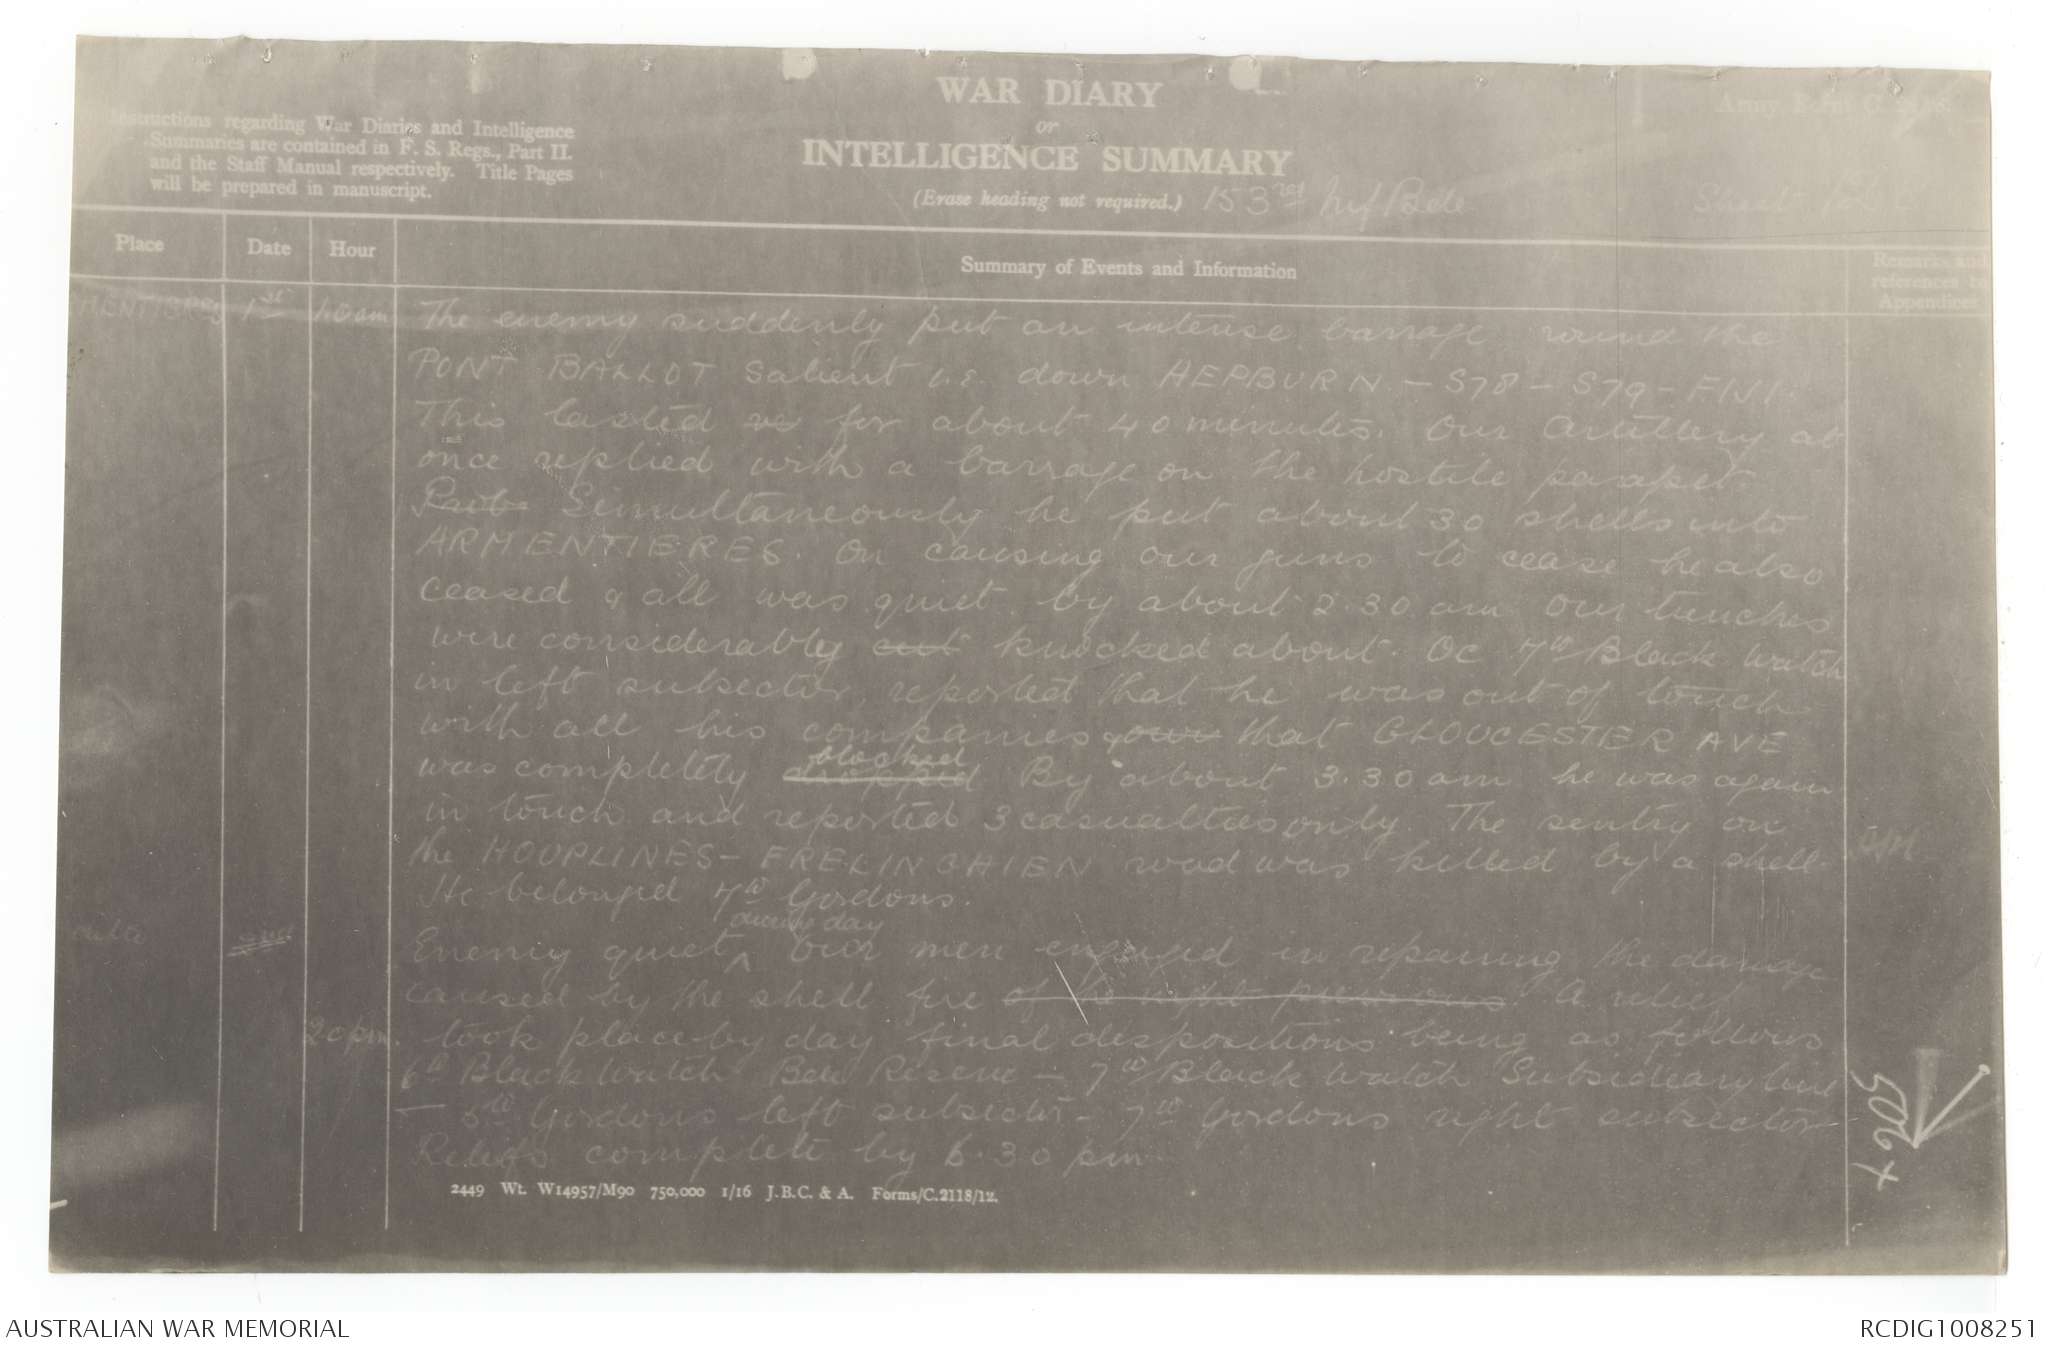 WAR DIARY
or
INTELLIGENCE SUMMARY
(Erase heading not required.) 153rd Inf Bde
Instructions regarding War Diaries and Intelligence
Summaries are contained in F. S. Regs., Part II.
and the Staff Manual respectively. Title Pages
will be prepared in manuscript.
Army Form C.
Place
Date
Hour
Summary of Events and Information
Remarks and
references to
Appendices
MENTIERES 1st 1.0 am The enemy suddenly put an intense barrage round the
PONT BALLOT Salient i.e. down HEPBURN - S78 - S79 - FIJI.
This lasted for about 40 minutes. Our Artillery at
once replied with a barrage on the hostile parapet.
Simultaneously he put about 30 shells into
ARMENTIERES. On causing our guns to cease he also
ceased & all was quiet by about 2.30 am Our trenches
were considerably cut knocked about. OC 7th Black Watch
in left subsector, reported that he was out of touch
with all his companies & that GLOUCESTER AVE
was completely blocked By about 3.30 am he was again
in touch and reported 3 casualties only. The sentry on
the HOUPLINES - FRELINGHIEN road was killed by a shell.
He belonged 7th Gordons.
Enemy quiet during day Our men engaged in repairing the damage
caused by the shell fire of the night previous A relief
2.0 pm. took place by day final dispositions being as follows
6th Black Watch Bde Reserve - 7th Black Watch Subsidiary line
- 5th Gordons left subsector - 7th Gordons right subsector
Reliefs complete by 6.30 pm.
2449 Wt. W14957/M90 750,000 1/16 J.B.C. & A. Forms/C.2118/12.
AUSTRALIAN WAR MEMORIAL
RCDIG1008251